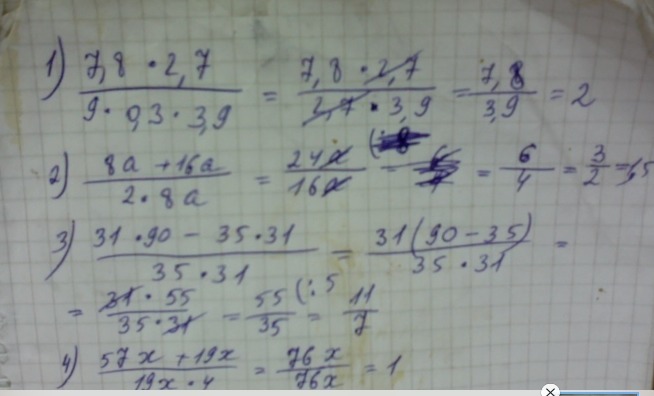 1) (7,8 · 2,7)/(9 · 0,3 · 3,9) = (7,8 · 2,7)/(2,7 · 3,9) = 7,8/3,9 = 2
2) (8a + 16a)/(2 · 8a) = 24a/16a = = 6/4 = 3/2 = 1,5
3) (31 · 90 − 35 · 31)/(35 · 31) = 31(90 − 35)/(35 · 31) =
= (31 · 55)/(35 · 31) = 55/35 (: 5 = 11/7
4) (57x + 19x)/(19x · 4) = 76x/76x = 1